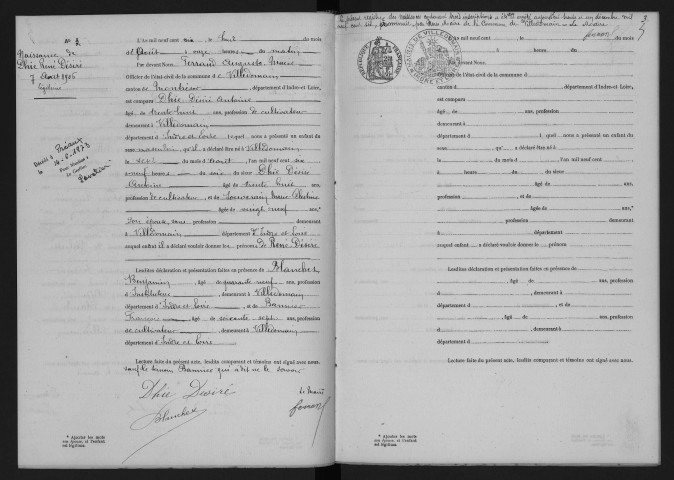 N° 2
Naissance de
Dhée René Désiré
7 Août 1906
légitime
Décédé à Préaux
le 14-5-1973
L'An mil neuf cent six le huit du mois
d'août à onze heures du matin
Par devant Nous Ferrand Auguste, Maire
Officier de l'état civil de la commune de Villedomain
canton de Montrésor, département d'Indre-et-Loire,
est comparu Dhée Désiré Antoine
âgé de trente huit ans, profession de cultivateur
demeurant à Villedomain
département d'Indre et Loire, lequel nous a présenté un enfant du
sexe masculin qu'il a déclaré être né à Villedomain
le sept du mois d'août, l'an mil neuf cent six
à neuf heures du soir du sieur Dhée Désiré
Antoine, âgé de trente huit ans,
profession de cultivateur, et de Marie
âgée de vingt neuf ans,
son épouse, sans profession demeurant
à Villedomain département d'Indre et Loire
auquel enfant il a déclaré vouloir donner les prénoms de René Désiré
Lesdites déclaration et présentation faites en présence de Blanchet
Benjamin, âgé de quarante neuf ans, profession
d'Instituteur, demeurant à Villedomain
département d'Indre et Loire, et de Bannier
François, âgé de soixante sept ans, profession
de cultivateur, demeurant à Villedomain
département d'Indre et Loire
Lecture faite du présent acte, lesdits comparant et témoins ont signé avec nous.
sauf le témoin Bannier qui a dit ne le savoir
Dhée Désiré
Le Maire
Blanchet
Ferrand
* Ajouter les mots
son épouse, si l'enfant
est légitime.
3
L'An mil neuf cent le du mois
d à heure du
Par devant Nous
Officier de l'état civil de la commune d
canton d, département d'Indre-et-Loire,
est comparu
âgé de ans, profession
demeurant à
département d, lequel nous a présenté un enfant du
sexe qu' a déclaré être né à
le du mois d, l'an mil neuf cent
à heure du du sieur
, âgé de ans,
profession, et de
, âgée de ans,*
profession demeurant
à département
auquel enfant a déclaré vouloir donner le prénom
Lesdites déclaration et présentation faites en présence de
, âgé de ans, profession
d, demeurant à
département d, et de
, âgé de ans, profession
d, demeurant à
département d
Lecture faite du présent acte, lesdits comparant et témoins ont signé avec nous.
* Ajouter les mots
son épouse, si l'enfant
est légitime.